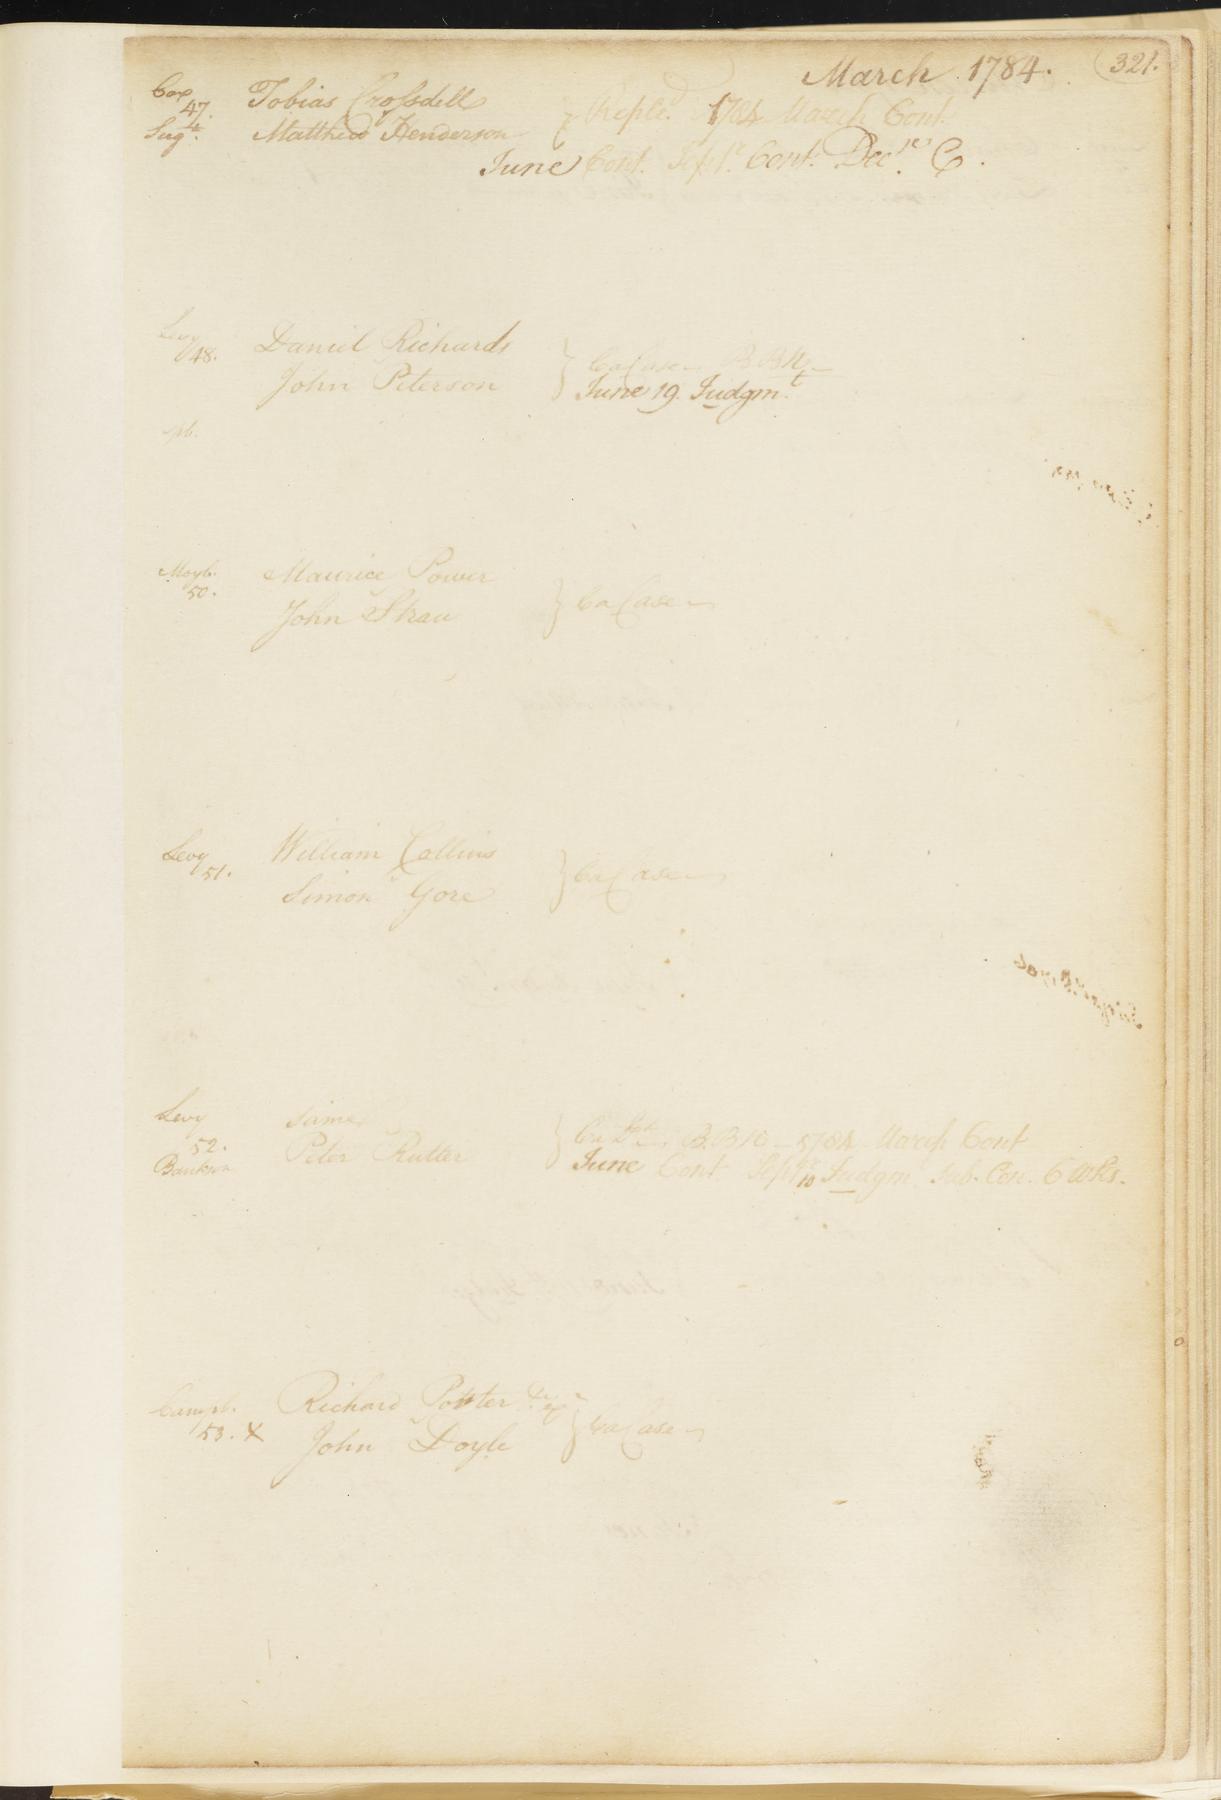 March 1784. 321.
Cox 47. Tobias Crossdell
Sugt. Matthew Henderson } Repld. 1784 March Cont.
June Cont. Septr. Cont. Decr. C.
Levy 48. Daniel Richards
John Peterson } Ca Case B B K
June 19. Judgmt.
Moyl. 50. Maurice Power
John Shaw } Ca Case
Levy 51. William Collins
Simon Gore } Ca Case
Levy 52. Same
Bankson Peter Rutter } Ca B.B K 1784 March Cont
June Cont Septr 10 Judgm. Sub. Con. 6 Wks.
Campl. 53. X Richard Potter
John Doyle } Ca Case